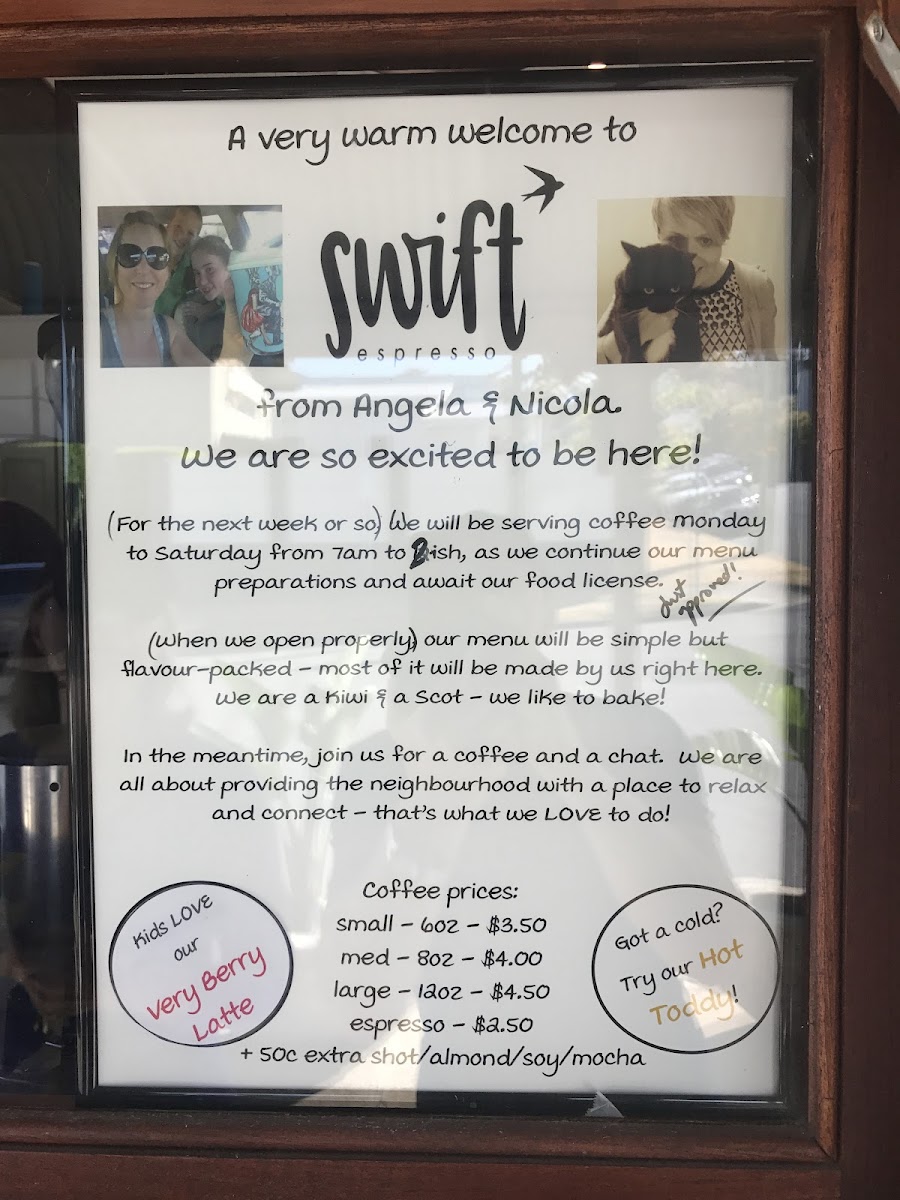 A very warm welcome to
swift
espresso
from Angela & Nicola.
We are so excited to be here!
(For the next week or so) We will be serving coffee monday
to Saturday from 7am to 2ish, as we continue our menu
preparations and await our food license.
Just
approved!
(When we open properly) our menu will be simple but
flavour-packed – most of it will be made by us right here.
We are a Kiwi & a Scot – we like to bake!
In the meantime, join us for a coffee and a chat. We are
all about providing the neighbourhood with a place to relax
and connect – that's what we LOVE to do!
Kids LOVE
our
Very Berry
Latte
Coffee prices:
small – 6oz – $3.50
med – 8oz – $4.00
large – 12oz – $4.50
espresso – $2.50
+ 50c extra shot/almond/soy/mocha
Got a cold?
Try our Hot
Toddy!